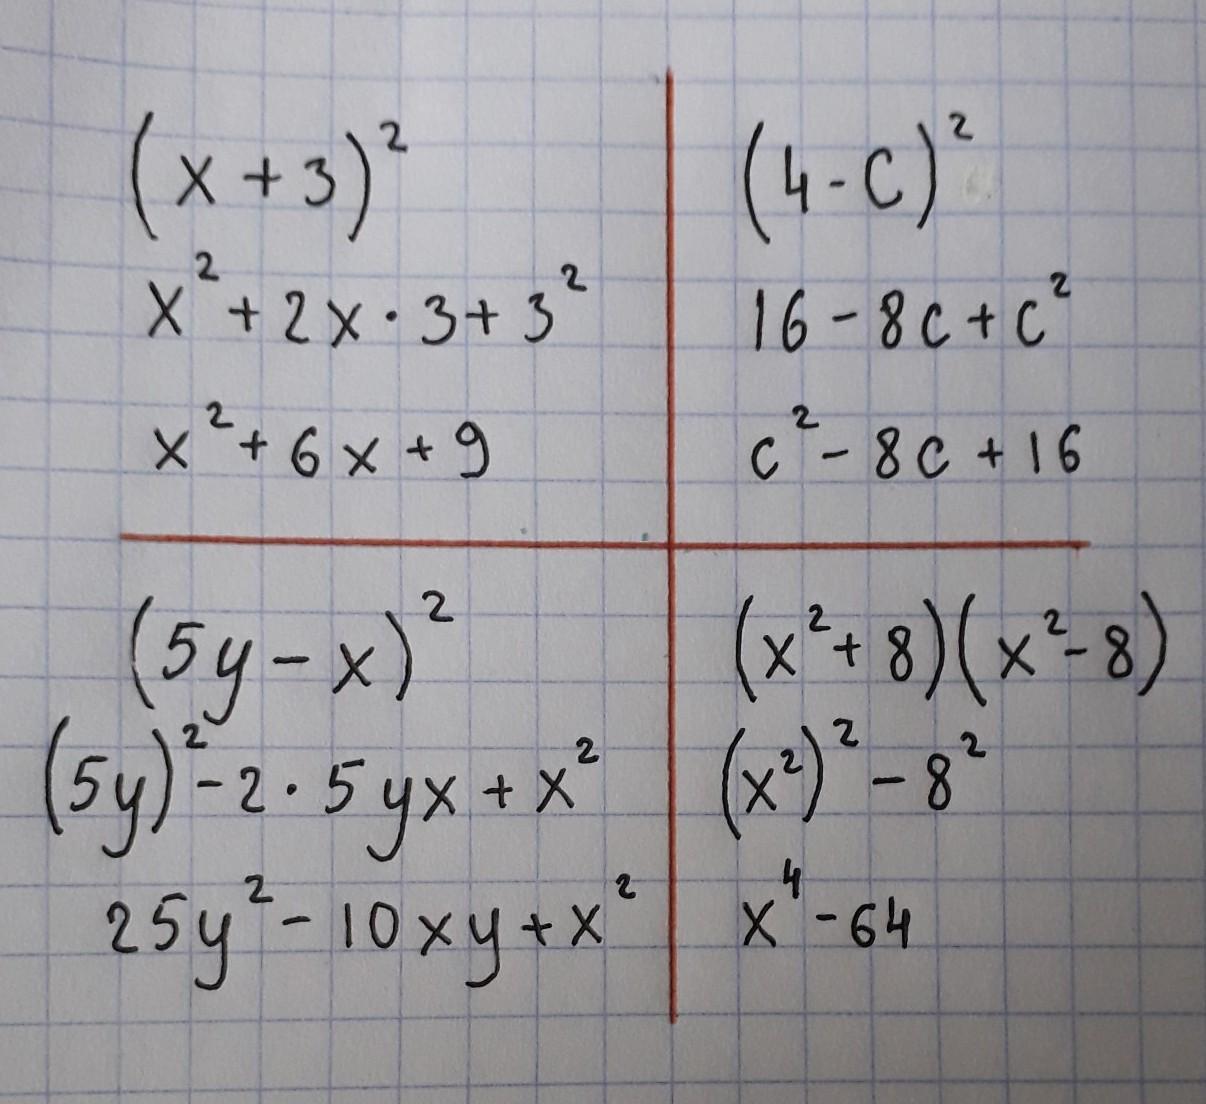 (x + 3)²
x² + 2x · 3 + 3²
x² + 6x + 9
(4 - C)²
16 - 8c + c²
c² - 8c + 16
(5y - x)²
(5y)² - 2 · 5yx + x²
25y² - 10xy + x²
(x² + 8)(x² - 8)
(x²)² - 8²
x⁴ - 64